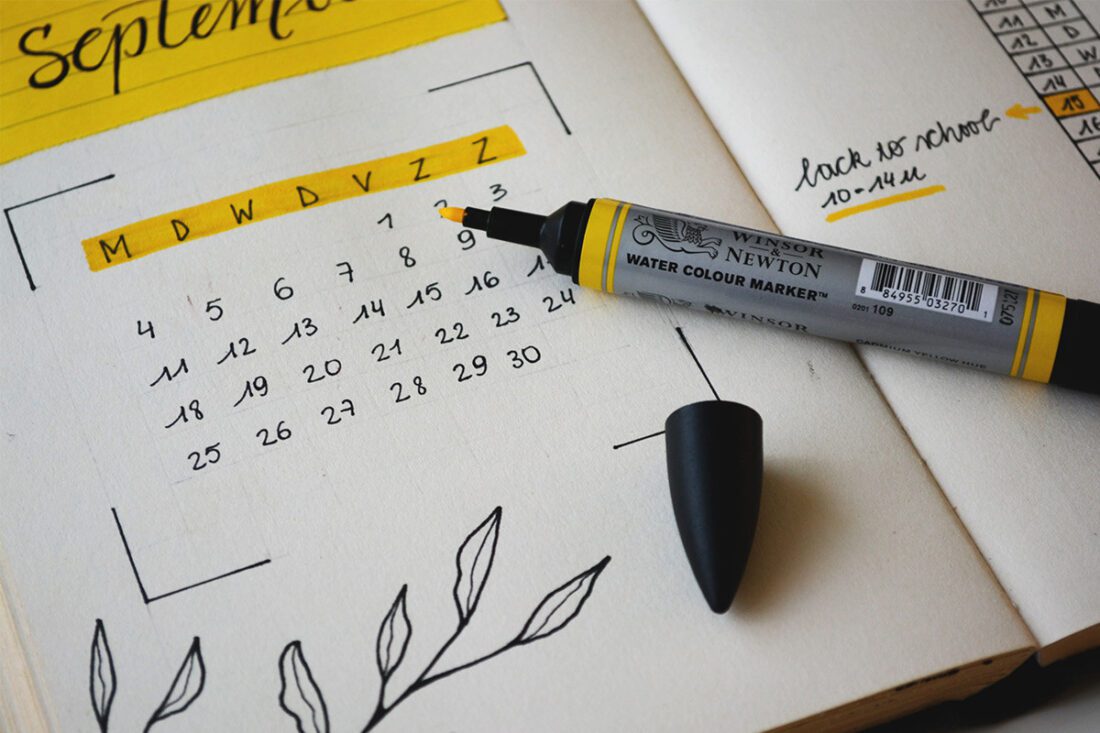 September
M D W D V Z Z
1 2 3
4 5 6 7 8 9
11 12 13 14 15 16
18 19 20 21 22 23 24
25 26 27 28 29 30
WINSOR
&
NEWTON
WATER COLOUR MARKER™
WINSOR
CADMIUM YELLOW HUE
8 84955 03270 1
0201 109
back to school
10-14u
10
11 M
12 D
13 W
14
15
16